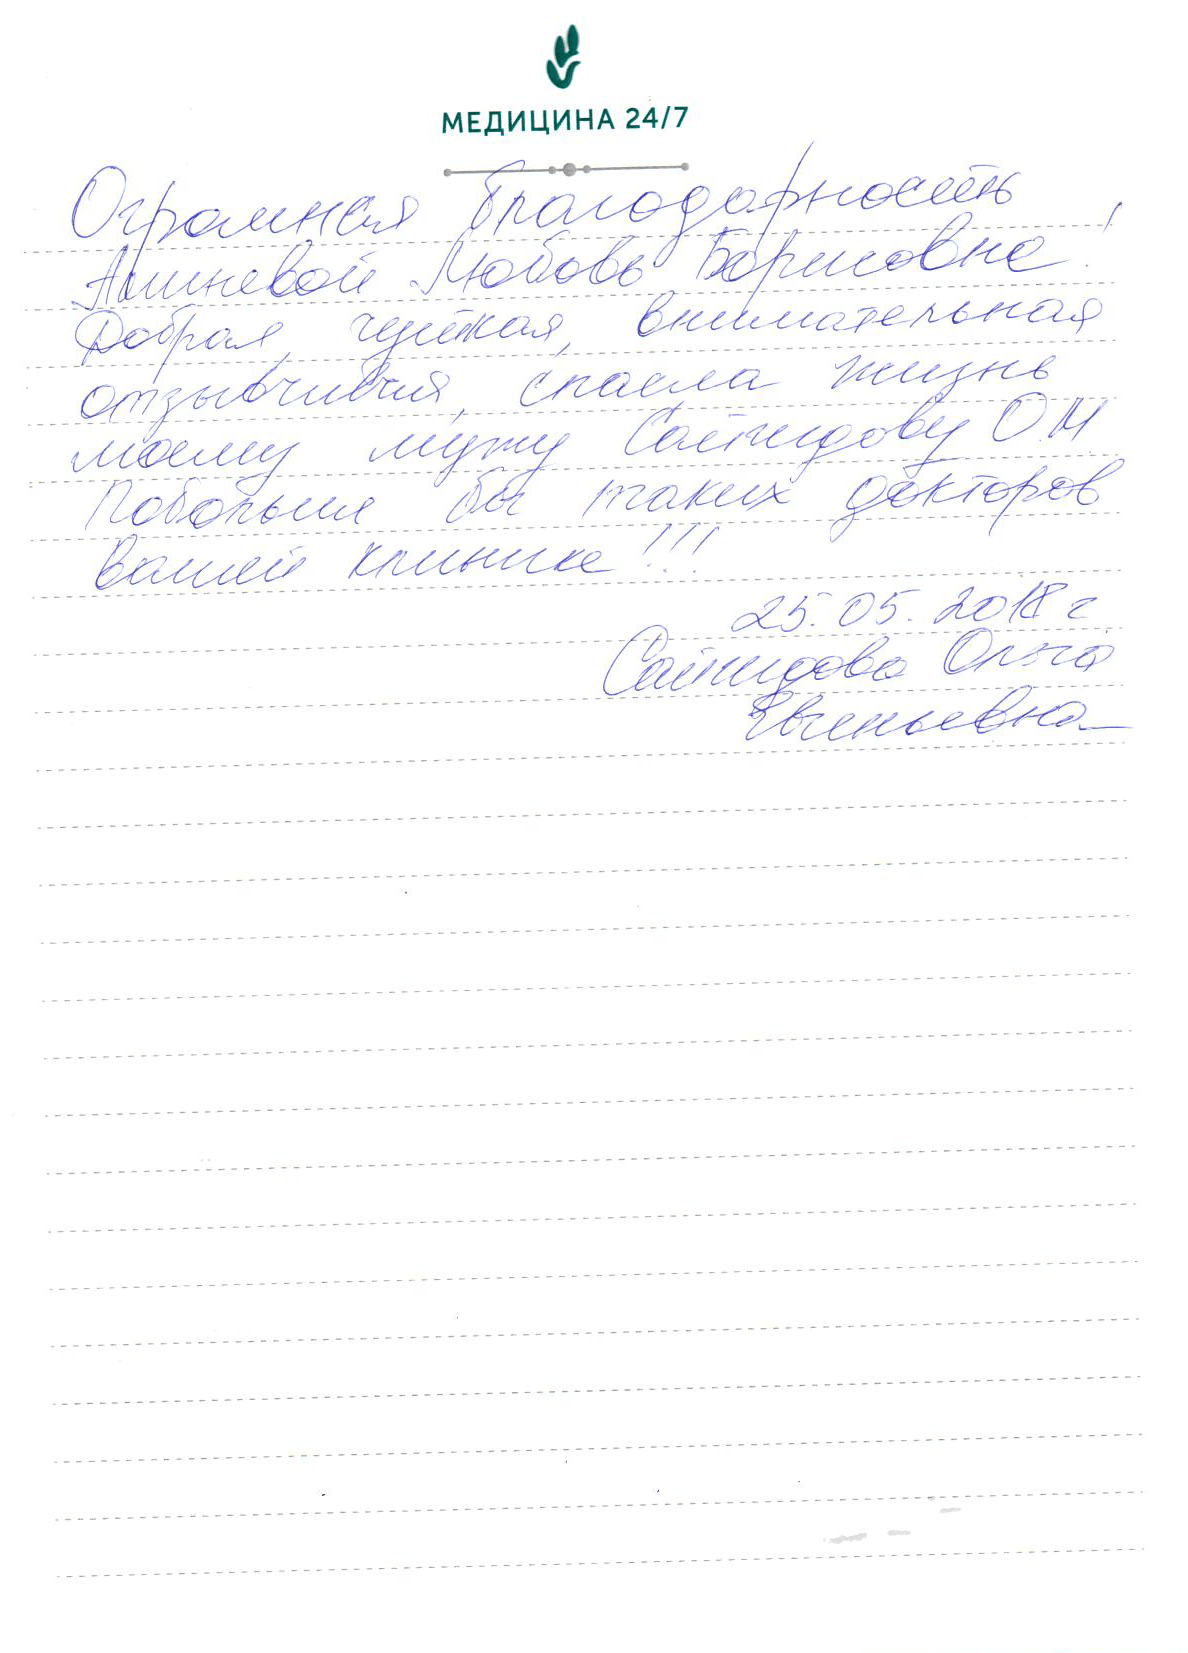 МЕДИЦИНА 24/7
Огромная благодарность
Любовь Борисовне!
Добрая, чуткая, внимательная
отзывчивая, спасла жизнь
моему мужу О.М
Побольше бы таких докторов
вашей клинике!!!
25.05.2018 г
Ольга
Евгеньевна